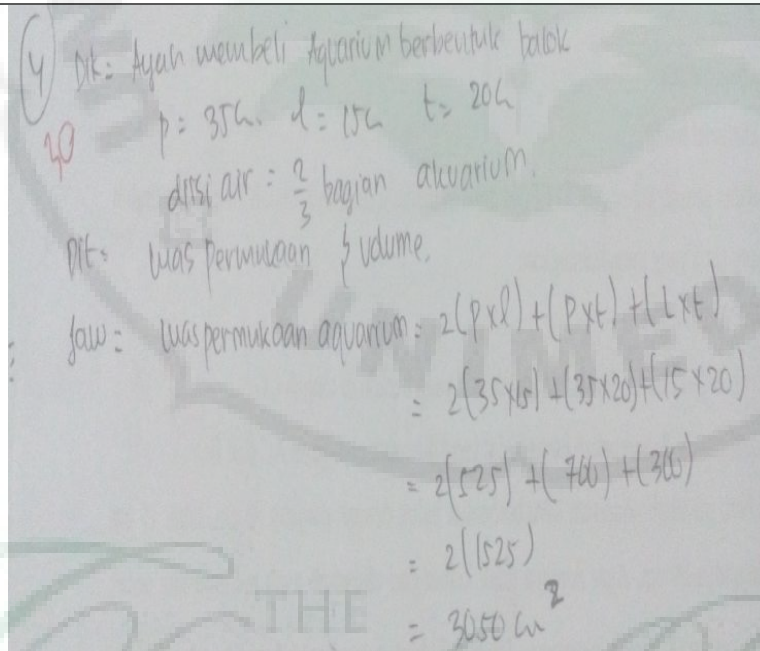 4
40
Dik: Ayah membeli Aquarium berbentuk balok
p = 35 cm. l = 15 cm t = 20 cm
diisi air = 2/3 bagian akuarium.
Dit: luas permukaan & volume.
Jaw: luas permukaan aquarium = 2(p x l) + (p x t) + (l x t)
= 2(35 x 15) + (35 x 20) + (15 x 20)
= 2(525) + (700) + (300)
= 2(1525)
= 3050 cm²
UNIMED
THE